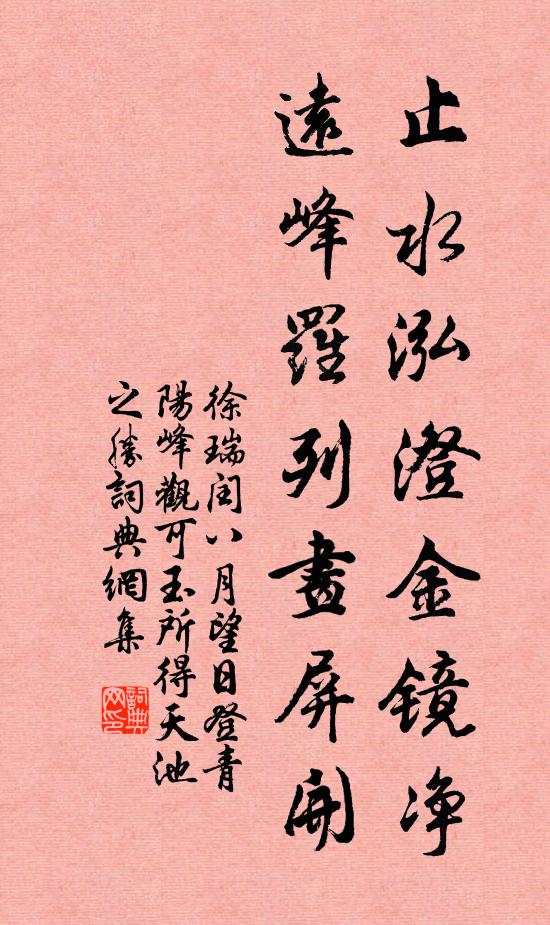 止水泓澄金鏡净
遠峰羅列畫屏開
徐瑞閏八月望日登青
陽峰觀可玉所得天池
之勝詞典網集
詞典
网印